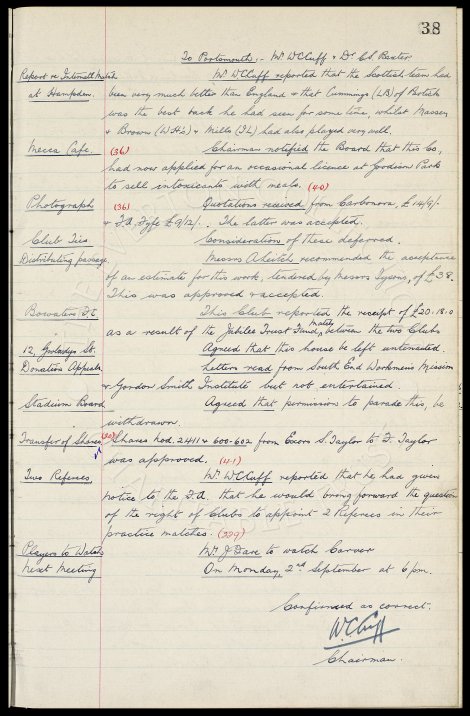 38
To Portsmouth :- Mr WCCuff & Dr CS Baxter
Report re Internatl Match Mr WCCuff reported that the Scottish team had
at Hampden. been very much better than England & that Cummings (LB) of Partick
was the best back he had seen for some time, whilst Massey
& Brown (WH's) & Mills (IL) had also played very well.
Mecca Cafe. (36) Chairman notified the Board that this Co,
had now applied for an occasional licence at Goodison Park
to sell intoxicants with meals. (40)
Photograph (36) Quotations received from Carbonora, £14/9/-
& Fyfe £9/12/-. The latter was accepted.
Club Ties Consideration of these deferred.
Distributing passage. Messrs A Leitch recommended the acceptance
of an estimate for this work, tendered by Messrs Tysons, of £38.
This was approved & accepted.
This Club reported the receipt of £20.18.0
as a result of the Jubilee Trust Fund Match, between the two Clubs
12, Gwladys St. Agreed that this house be left untenanted.
Donation Appeals Letters read from South End Workmens Mission
& Gordon Smith Institute but not entertained.
Stadium Board Agreed that permission to parade this, be
withdrawn.
Transfer of Shares Shares Nod. 2411 & 600-602 from Exors S. Taylor to F. Taylor
was approved. (41)
Two Referees Mr. WCCuff reported that he had given
notice to the F.A. that he would bring forward the question
of the right of Clubs to appoint 2 Referees in their
practice matches. (229)
Players to Watch Mr. J Dare to watch Carver
Next Meeting On Monday, 2nd September at 6 pm.
Confirmed as correct.
W.C.Cuff
Chairman.